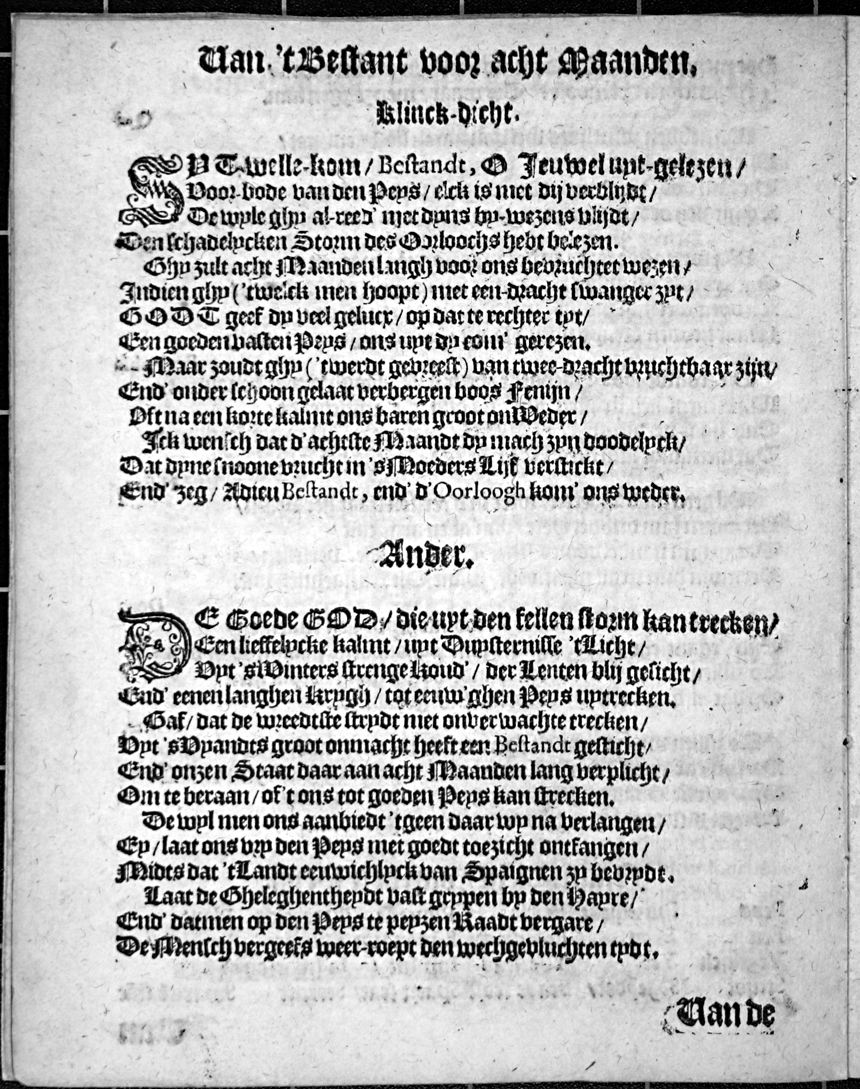 Van 't Bestant voor acht Maanden.
Klinck-dicht.
ZYT welle-kom / Bestandt, O Jeuwel uyt-gelezen /
Voor-bode van den Peys / elck is met dij verblijdt /
De wyle ghy al-reed' met dyns by-wezens vlijdt /
Den schadelycken Storm des Oorloochs hebt belezen.
Ghy zult acht Maanden langh voor ons bevruchtet wezen /
Indien ghy ('twelck men hoopt) met een-dracht swanger zyt /
GODT geef dy veel gelucx / op dat te rechter tyt /
Een goeden vasten Peys / ons uyt dy com' gerezen.
Maar zoudt ghy ('twerdt gevreest) van twee-dracht vruchtbaar zijn /
End' onder schoon gelaat verbergen boos Fenijn /
Oft na een korte kalmt ons baren groot onWeder /
Ick wensch dat d'achtste Maandt dy mach zyn doodelyck /
Dat dyne snoone vrucht in 's Moeders Lijf verstickt /
End' zeg / Adieu Bestandt, end' d'Oorloogh kom' ons weder.
Ander.
DE Goede GOD / die uyt den fellen storm kan trecken /
Een lieffelycke kalmt / uyt Duysternisse 't Licht /
Uyt 's Winters strenge koud' / der Lenten blij gesicht /
End' eenen langhen Krygh / tot eeuw'ghen Peys uytrecken.
Gaf / dat de wreedtste strydt met onverwachte trecken /
Uyt 's Vyandts groot onmacht heeft een Bestandt gesticht /
End' onzen Staat daar aan acht Maanden lang verplicht /
Om te beraan / of 't ons tot goeden Peys kan strecken.
De wyl men ons aanbiedt 'tgeen daar wy na verlangen /
Ey / laat ons vry den Peys met goedt toezicht ontfangen /
Midts dat 't Landt eeuwichlyck van Spaignen zy bevrydt.
Laat de Gheleghentheydt vast grypen by den Hayre /
End' datmen op den Peys te peyzen Raadt vergare /
De Mensch vergeefs weer-roept den wechgevluchten tydt.
Van de